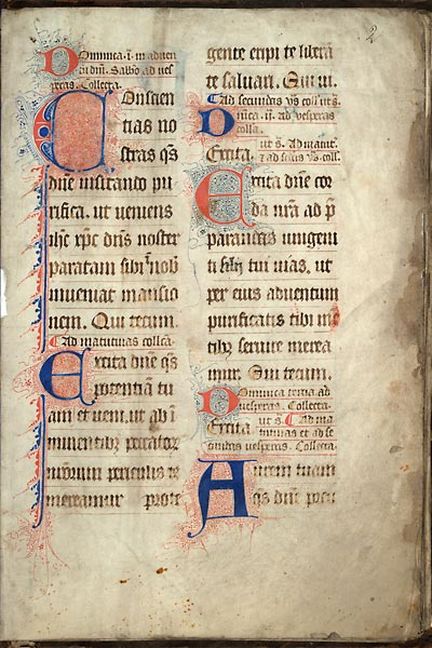 2
Dominica .i. in adven
tu dnı. Sabbo ad ves
peras. Collecta.
Conscien
tias no
stras qs
dne visitando pu
rifica. ut veniens
ihc xpc dns noster
paratam sibi in nob
inveniat mansio
nem. Qui tecum.
Ad matutinas collca.
Excita dne qs
potentiam tu
am et veni. ut ab i
minentibz peccator
nrorum periculis te
mereamur prote
gente eripi te libera
te salvari. Qui vi.
Ad secundas vs coll ut s.
Dnica .ii. ad vesperas
colla.
ut s. Ad matut.
Excita. et ad scdas vs. coll.
Excita dne cor
da nra ad p
parandas unigeni
ti filii tui vias. ut
per eius adventum
purificatis tibi me
tibz servire merea
mur. Qui tecum.
Dominica tercia ad
vesperas. Collecta.
ut s. Ad ma
Excita tutinas et ad se
cundas vesperas. Collecta.
Aurem tuam
qs dne preci